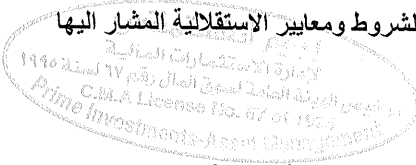 لشروط ومعايير الاستقلالية المشار اليها
لإدارة الاستثمارات المالية
ترخيص الهيئة العامة لسوق المال رقم ٦٧ لسنة ١٩٩٥
C.M.A License No. 67 of 1995
Prime Investments-Asset Management